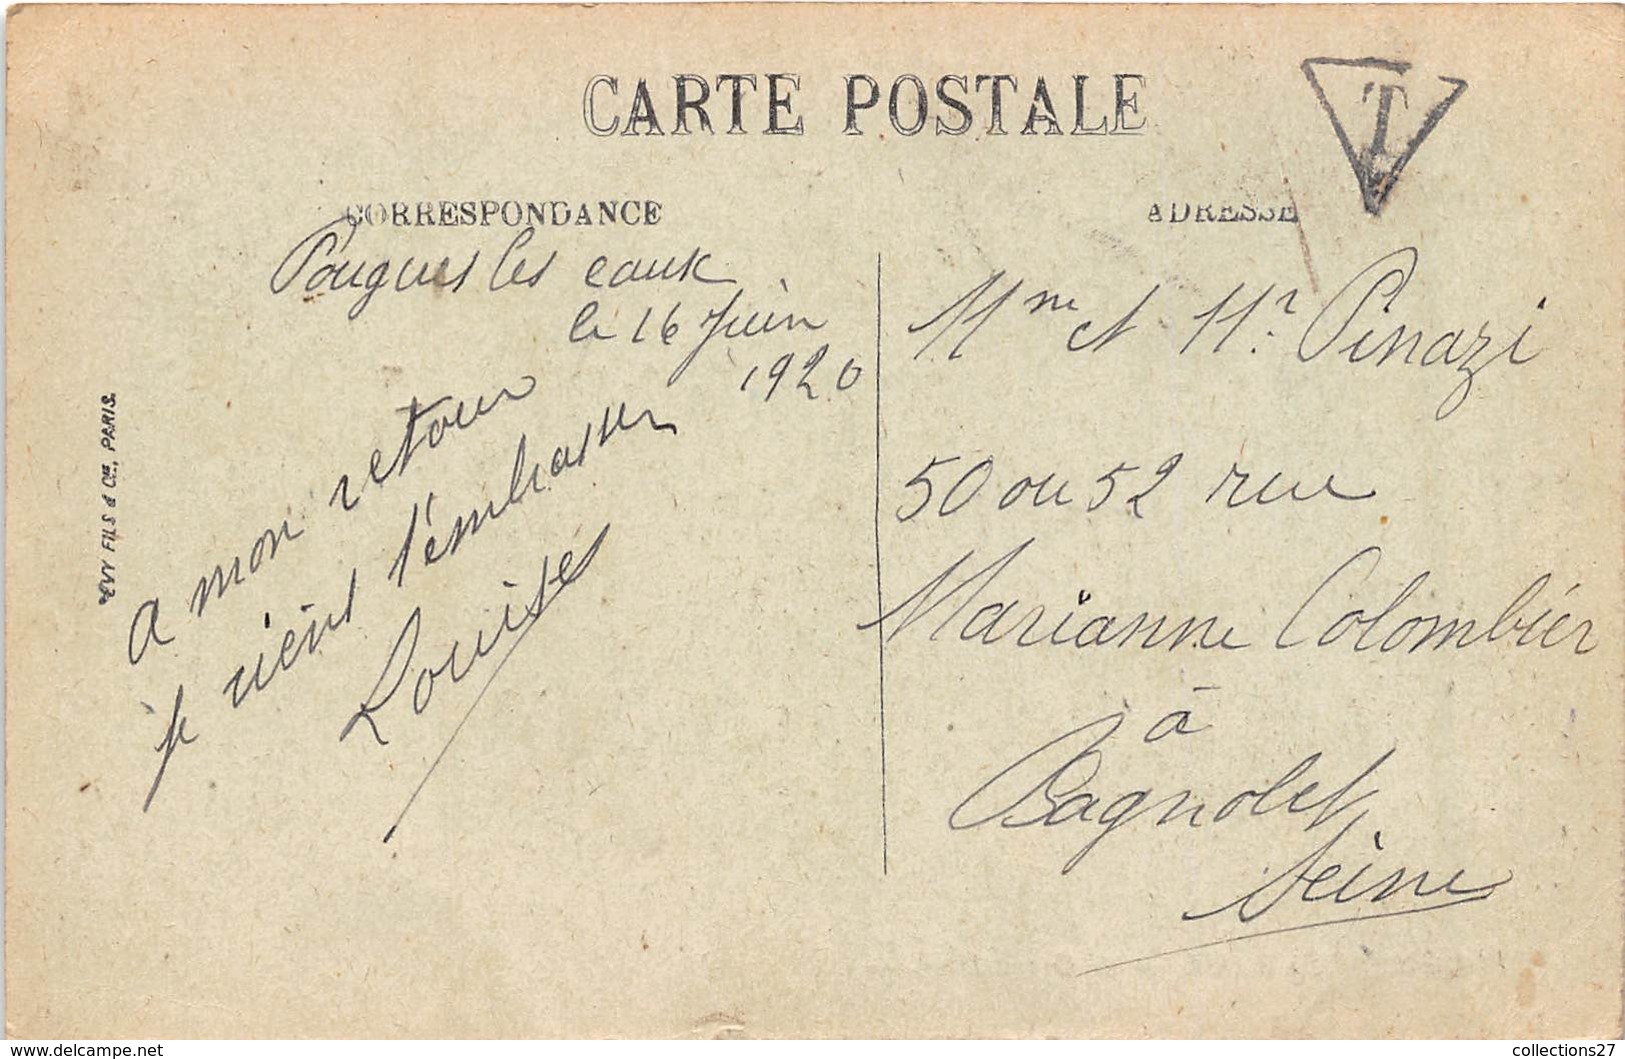 CARTE POSTALE
T
CORRESPONDANCE
ADRESSE
Pougues les eaux
le 16 Juin
1920
a mon retour
je viens t'embrasser
Louise
LEVY FILS & Cie, PARIS.
Mme et Mr Pinazi
50 ou 52 rue
Marianne Colombier
à
Bagnolet
Seine
www.delcampe.net
collections27